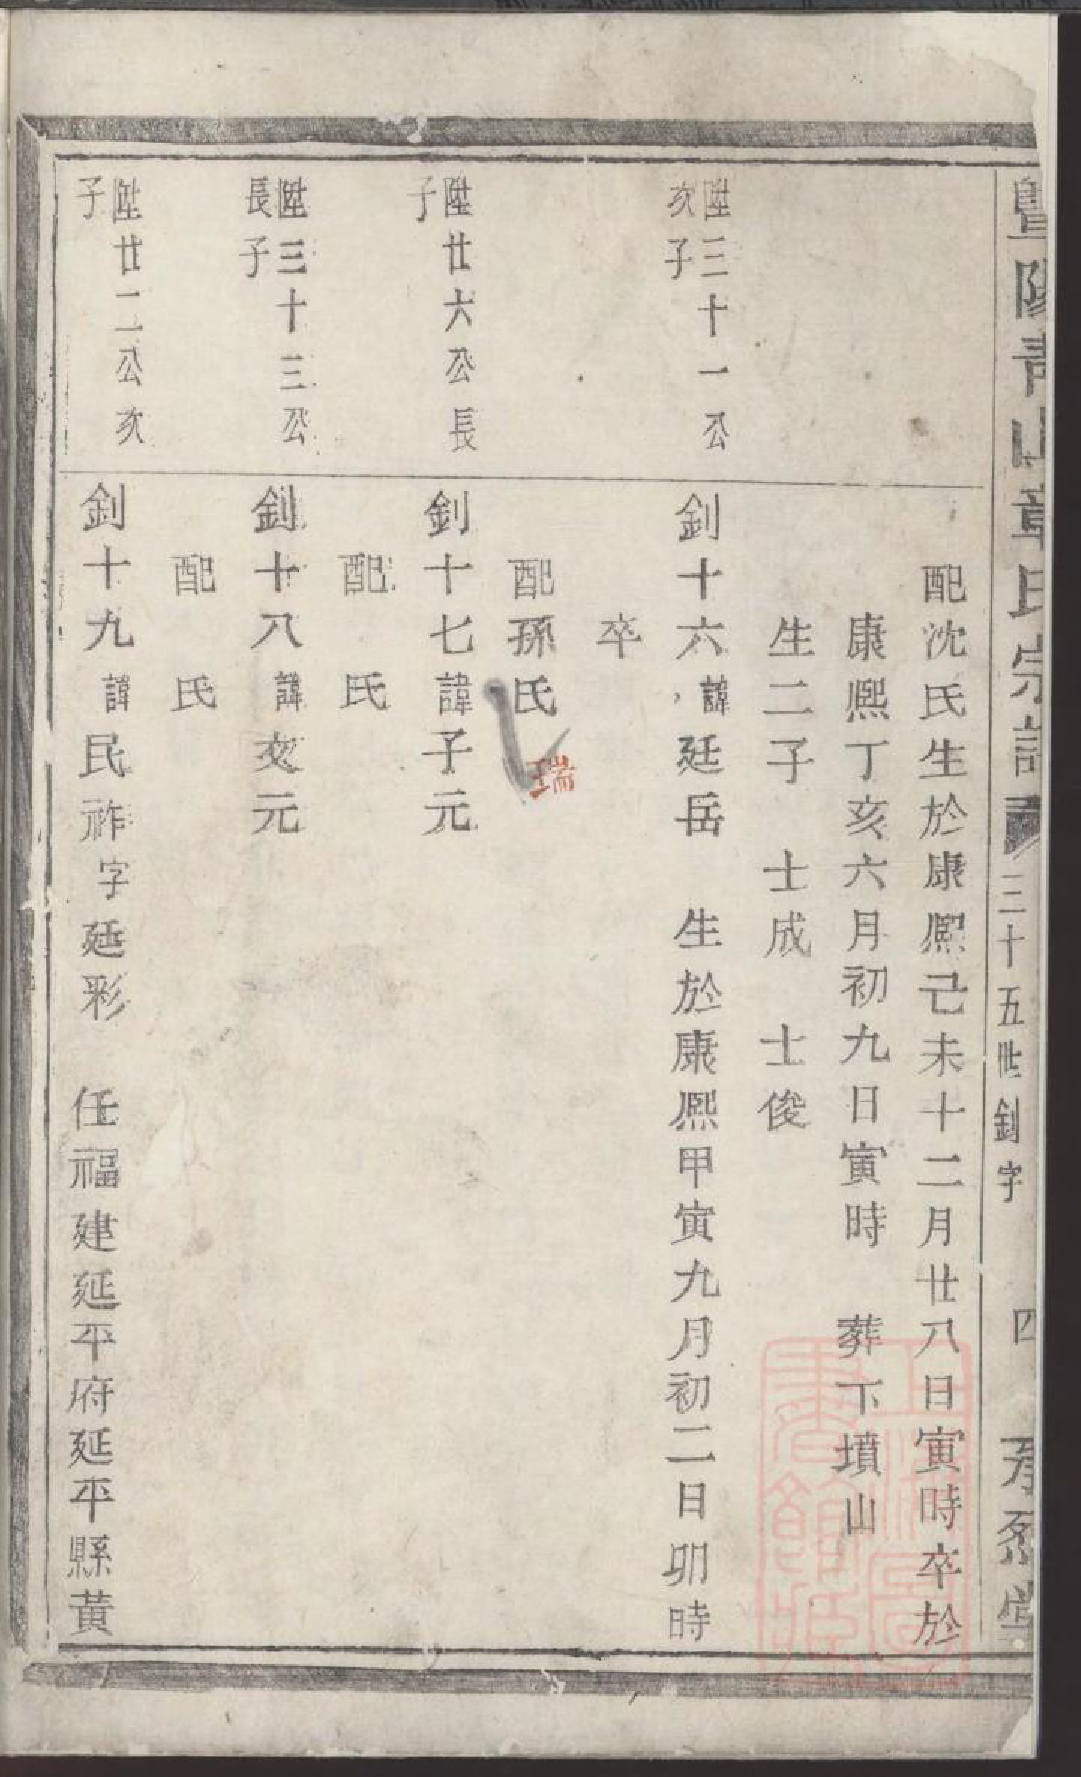 暨陽青山章氏宗譜 三十五世釗字 四 孝烝堂
配沈氏生於康熙己未十二月廿八日寅時卒於
康熙丁亥六月初九日寅時 葬下墳山
生二子 士成 士俊
陞三十一公
次子
釗十六諱廷岳 生於康熙甲寅九月初二日卯時
卒
配孫氏
瑞
陞廿六公長
子
釗十七諱子元
配 氏
陞三十三公
長子
釗十八諱文元
配 氏
陞廿二公次
子
釗十九諱民祚字廷彩 任福建延平府延平縣黃